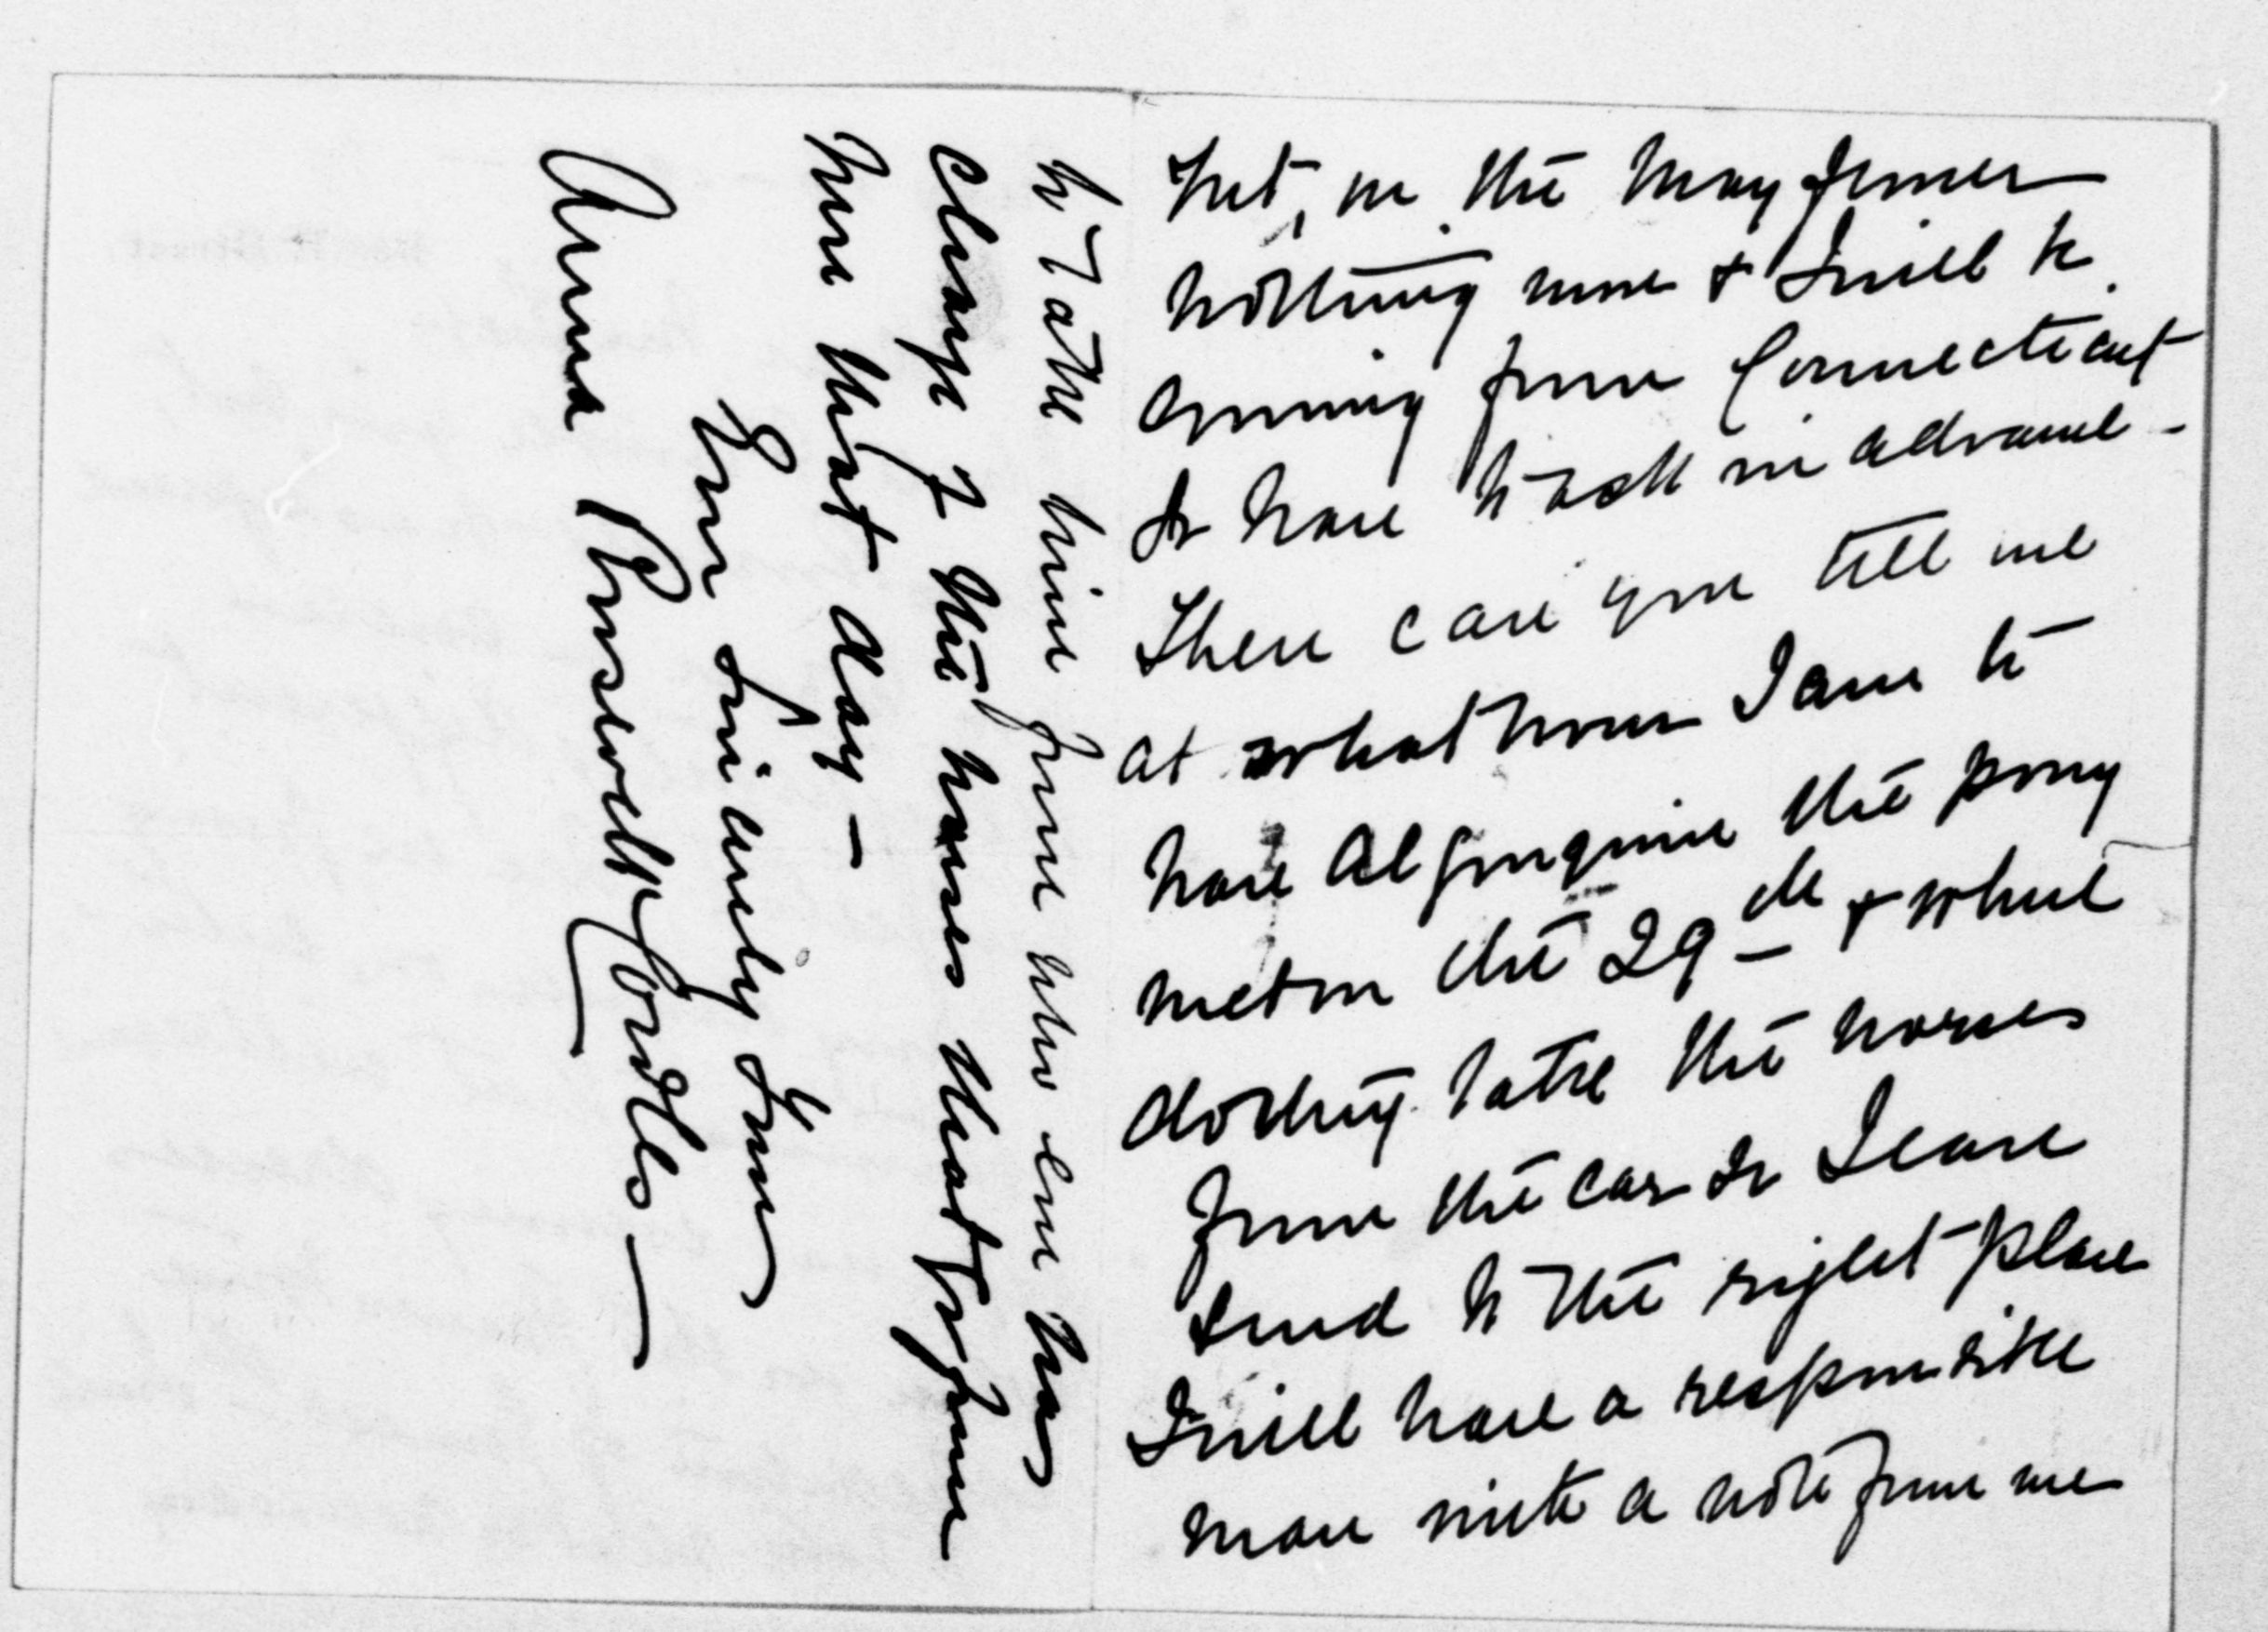 but, in the Mayflower
nothing more & I will be
coming from Connecticut
So have to ask in advance -
There can you tell me
at what hour I am to
have Algonquin the pony
met on the 29th & when
do they take the horses
from the car so I can
send to the right place
I will have a responsible
man with a note from me
to take him from who ever has
charge of the horses that for from
here that day -
Very sincerely yours
Anna Roosevelt Cowles -